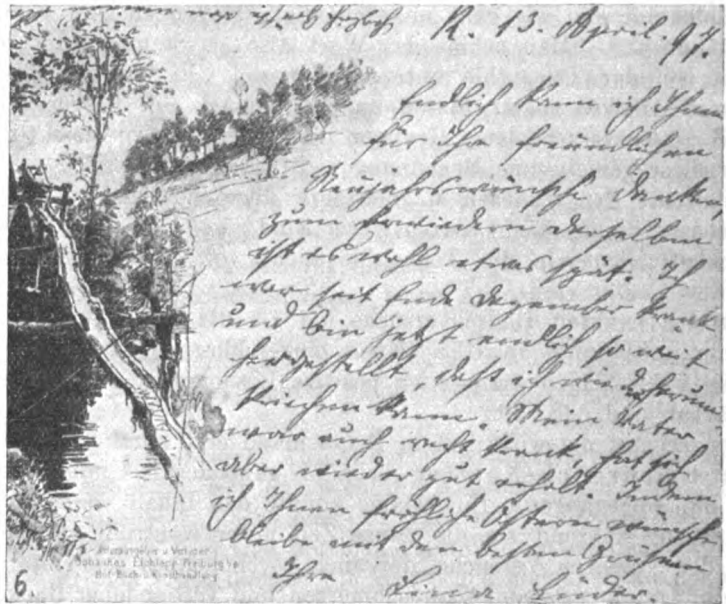 K. 13. April. 97.
Endlich kann ich Ihnen
für Ihre freundlichen
Neujahrswünsche danken,
zum Erwiedern derselben
ist es wohl etwas spät. Ich
war seit Ende Dezember krank
und bin jetzt endlich so weit
hergestellt, daß ich wieder
kriechen kann. Mein Vater
war auch recht krank, hat sich
aber wieder gut erholt. Indem
ich Ihnen fröhliche Ostern wünsche
bleibe mit den besten Grüßen
Ihre Lina Lüder.
u. Verlag der
Johannes Elchlepp Freiburg i/B
Hof-Buch- u. Kunsthandlung
6.